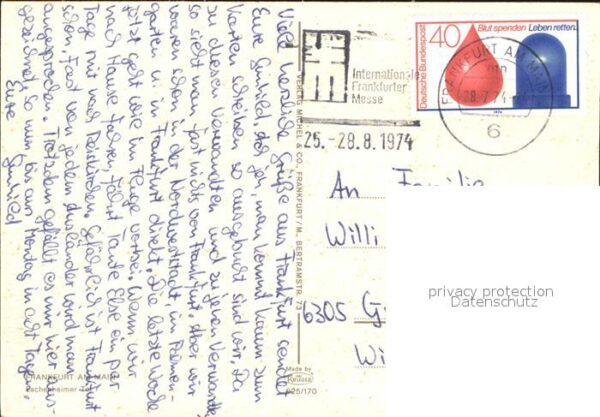 Viele herzliche Grüße aus Frankfurt sendet
Eure Gunhild. Ach ja, man kommt kaum zum
Karten schreiben so ausgebucht sind wir. Da
zu diesen Verwandten und zu jenen Verwandten
so sieht man fast nichts von Frankfurt. Aber wir
waren schon in der Nordweststadt, im Palmen-
garten u. in Frankfurt direkt. Die letzte Woche
jetzt geht wie im Fluge vorbei. Wenn wir
nach Hause fahren, fährt Tante Else ein paar
Tage mit nach. Gefährlich ist Frankfurt
schon, fast von jedem Ausländer wird man
angesprochen. Trotzdem gefällt es mir hier aus-
gezeichnet so nun bis am Montag in acht Tagen.
Eure
Gunhild
FRANKFURT AM MAIN
Eschenheimer Tor
VERLAG MICHEL & CO., FRANKFURT/M., BERTRAMSTR. 73
Made by
Krüger
925/170
Internationale
Frankfurter
Messe
25.-28.8.1974
Deutsche Bundespost
40
Blut spenden Leben retten.
FRANKFURT AM MAIN
6
An Familie
Willi
6305 G
Wi
privacy protection
Datenschutz